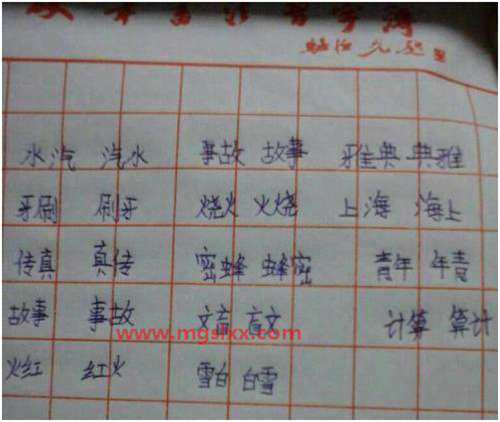 水汽 汽水 事故 故事 雅典 典雅
牙刷 刷牙 烧火 火烧 上海 海上
传真 真传 密蜂 蜂密 青年 年青
故事 事故 文盲 盲文 计算 算计
www.mgslxx.com
火红 红火 雪白 白雪